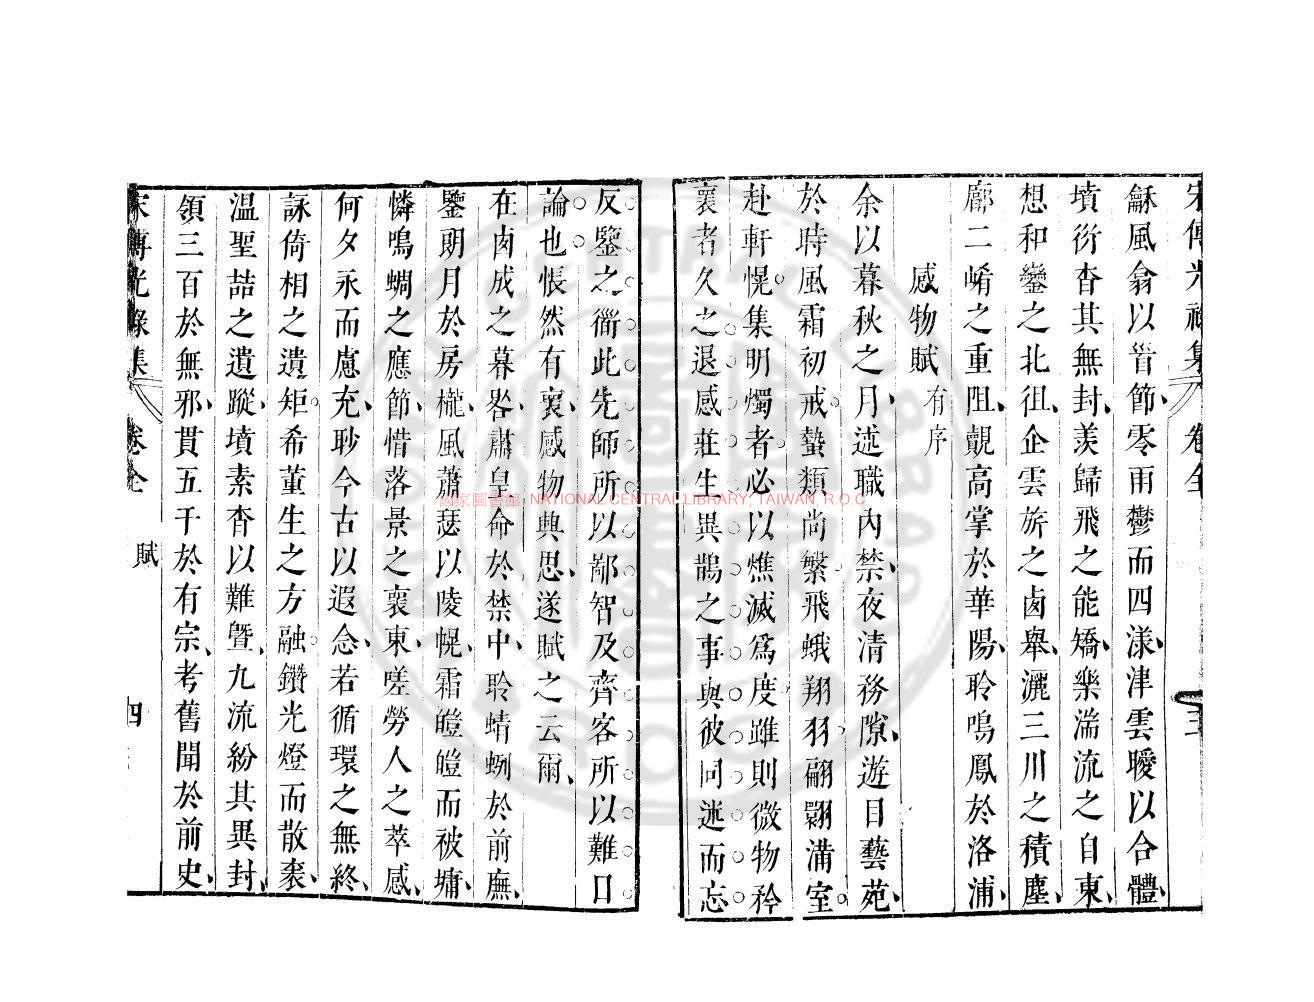 宋傅光祿集 卷全 三
龢風翕以節、零雨欝而四漾、津雲曖以合體、
墳衍杳其無封、羡歸飛之能矯、樂湍流之自東、
想和鑾之北徂、企雲旂之鹵舉、灑三川之積塵、
廓二崤之重阻、覿高掌於華陽、聆鳴鳳於洛浦、
感物賦 有序
余以暮秋之月、述職內禁、夜清務隙、遊目藝苑、
於時風霜初戒。蟄類尚繁。飛蛾翔羽。翩翾滿室。
赴軒幌。集明燭者。必以燋滅爲度。雖則微物矜
襄者久之。退感莊生異鵲之事。與彼同迷而忘
反鑒之衜此先師所以鄙智及齊客所以難日
論也。悵然有襄、感物興思、遂賦之云爾、
在鹵成之暮晷、肅皇命於禁中、聆蜻蛚於前廡、
鑒朗月於房櫳、風蕭瑟以陵幌、霜皚皚而被墉、
憐鳴蜩之應節、惜落景之襄東、嗟勞人之萃感、
何夕永而慮充、眇今古以遐念、若循環之無終、
詠倚相之遺矩。希董生之方融。鑽光燈而散袠、
温聖喆之遺蹤、墳素杳以難曁、九流紛其異封、
領三百於無邪、貫五千於有宗、考舊聞於前史、
宋傅光祿集 卷全 賦 四
國家圖書館 NATIONAL CENTRAL LIBRARY, TAIWAN, R.O.C